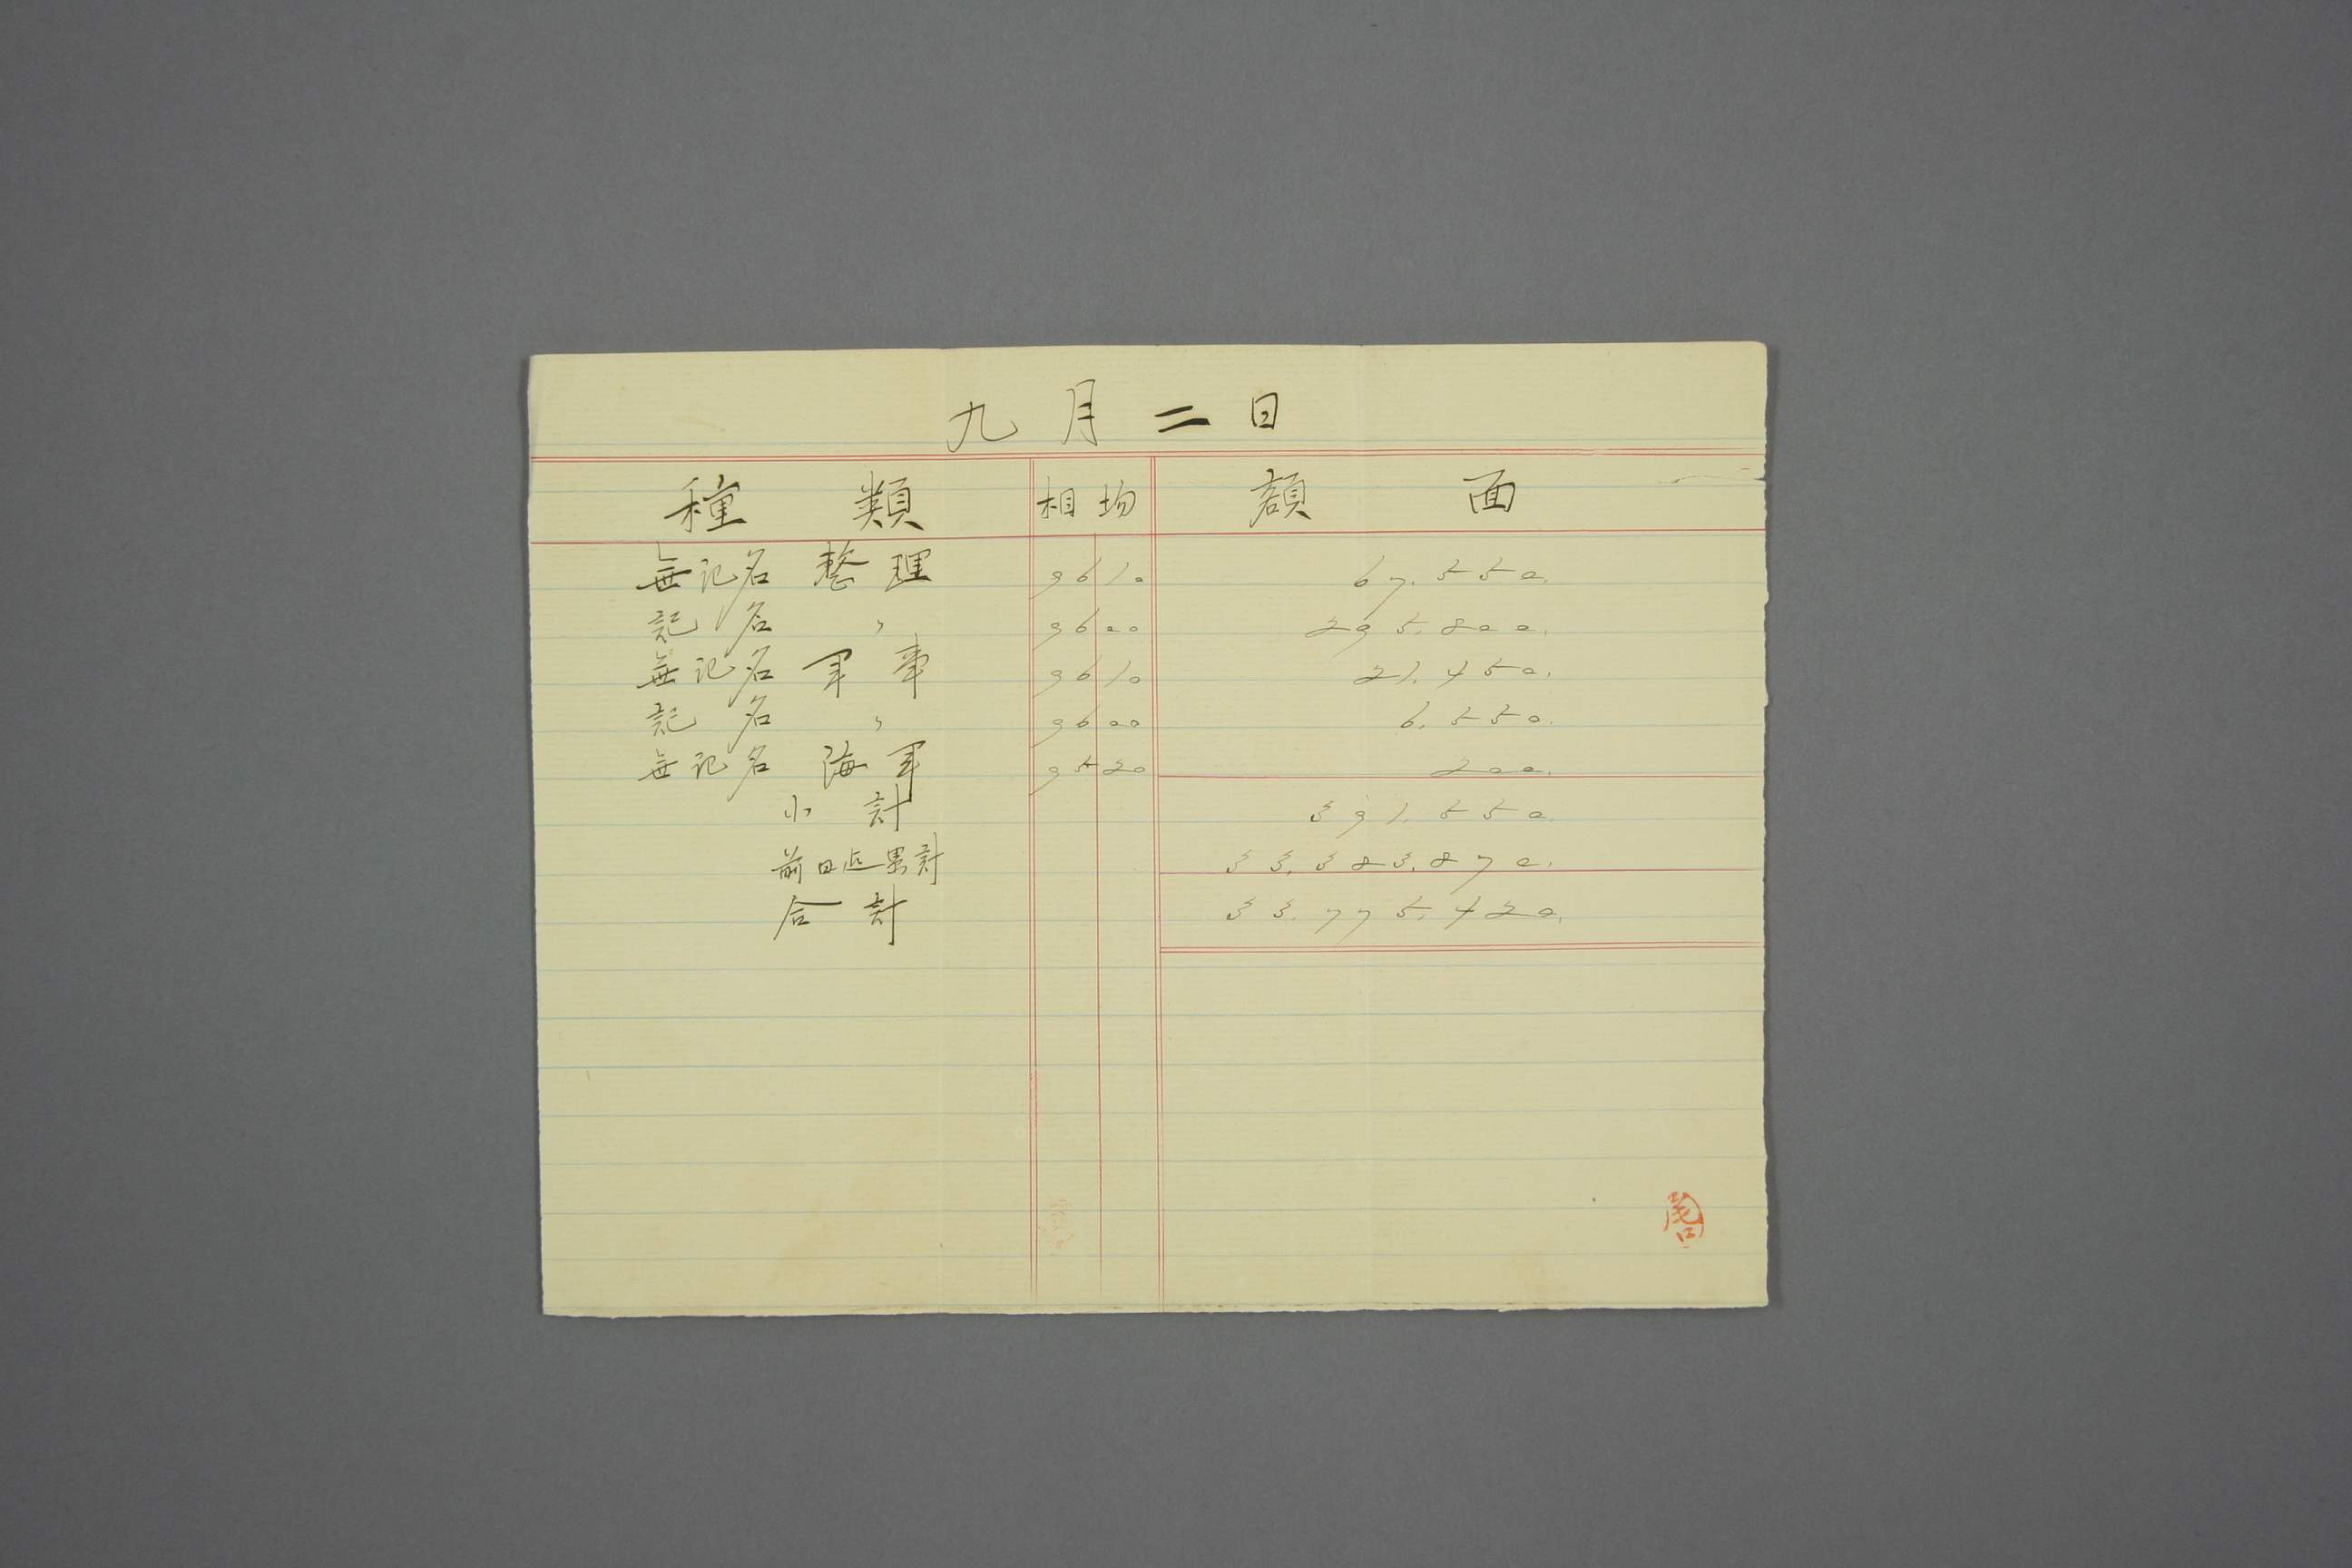 九月二日
種類 相場 額面
無記名 整理 96 10 67.550.
記名 〃 96 00 295.800.
無記名 軍事 96 10 21.450.
記名 〃 96 00 6.550.
無記名 海軍 95 20 200.
小計 391.550.
前日迄累計 33.383.870.
合計 33.775.420.